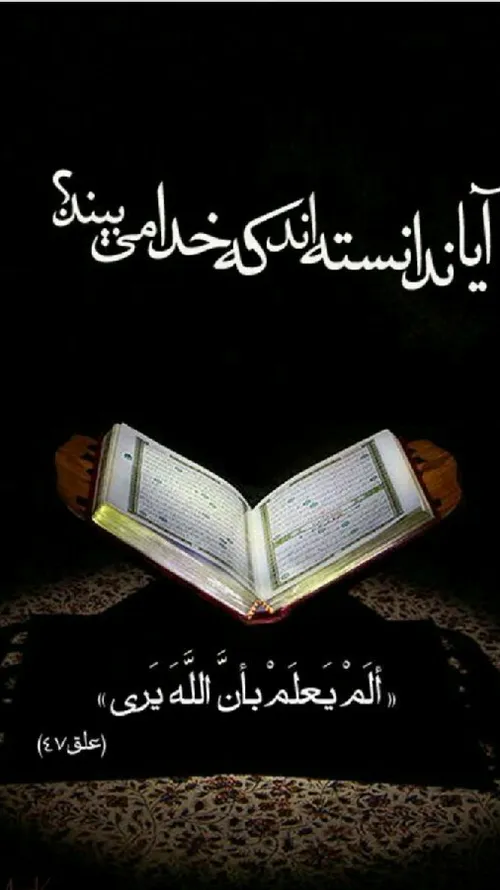 آیا ندانسته اند که خدا می بیند؟
« ألَمْ يَعلَمْ بأنَّ اللَّهَ يَرى »
(علق٤٧)